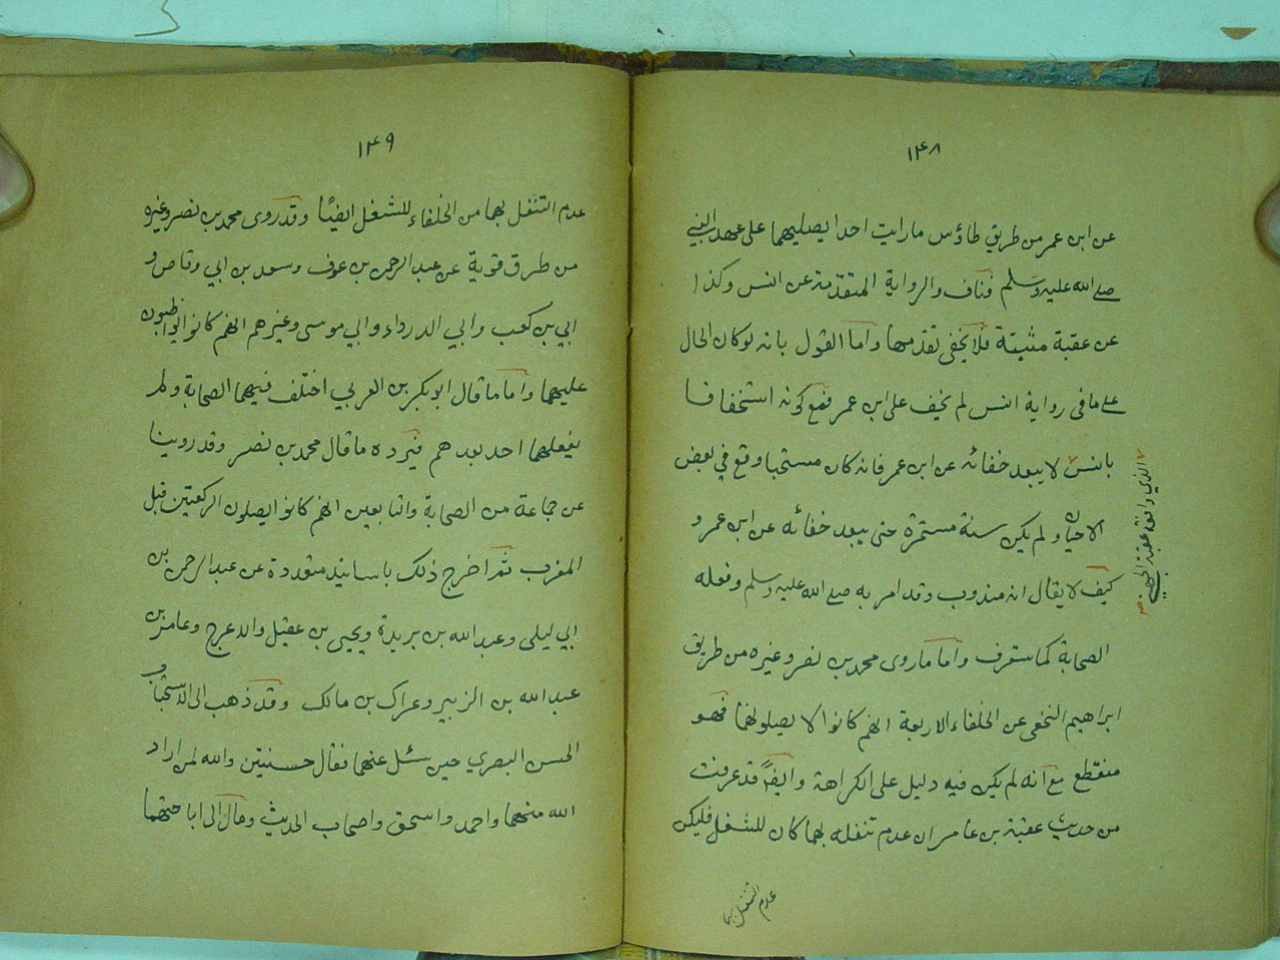 ١٤٨
عن ابن عمر من طريق طاؤس ما رايت احدا يصليهما على عهد النبي
صلے الله عليه وسلم فناف والرواية المتقدمة عن انس وكذا
عن عقبة مثبتة فلا يخفى تقدمها واما القول بانه لو كان الحال
على ما فى رواية انس لم يخف على ابن عمر فمع كونه استخفافا
بانس لا يبعد خفائه عن ابن عمر فانه كان مستحبا وقع في بعض
الاحيان ولم يكن سنة مستمرة حتى يبعد خفائه عن ابن عمر و
كيف لا يقال انه مندوب وقد امر به صلے الله عليه وسلم وفعله
الصحابة كما ستعرف واما ما روى محمد بن نصر وغيره من طريق
ابراهيم النخعى عن الخلفاء الاربعة انهم كانوا لا يصلونهما فهو
منقطع مع انه لم يكن فيه دليل على الكراهة وايضًا قد عرفت
من حديث عقبة بن عامر ان عدم تنفله بهما كان للشغل فليكن
عدم التنفل بهما
الذي وافقه عقبة الجهني
١٤٩
عدم التنفل بهما من الخلفاء للشغل ايضًا وقد روى محمد بن نصر وغيره
من طرق قوية عن عبد الرحمن بن عوف وسعد بن ابي وقاص و
ابي بن كعب وابي الدرداء وابي موسى وغيرهم انهم كانوا يواظبون
عليهما واما ما قال ابو بكر بن العربي اختلف فيهما الصحابة ولم
يفعلهما احد بعدهم فيرده ما قال محمد بن نصر وقد روينا
عن جماعة من الصحابة والتابعين انهم كانوا يصلون الركعتين قبل
المغرب ثم اخرج ذلك باسانيد متعددة عن عبد الرحمن بن
ابي ليلى وعبد الله بن بريدة ويحيى بن عقيل والاعرج وعامر بن
عبد الله بن الزبير وعراك بن مالك وقد ذهب الى الاستحباب
الحسن البصري حين سئل عنهما فقال حسنيتين والله لمن اراد
الله منهما واحمد واسحق واصحاب الحديث ومال الى اباحتهما